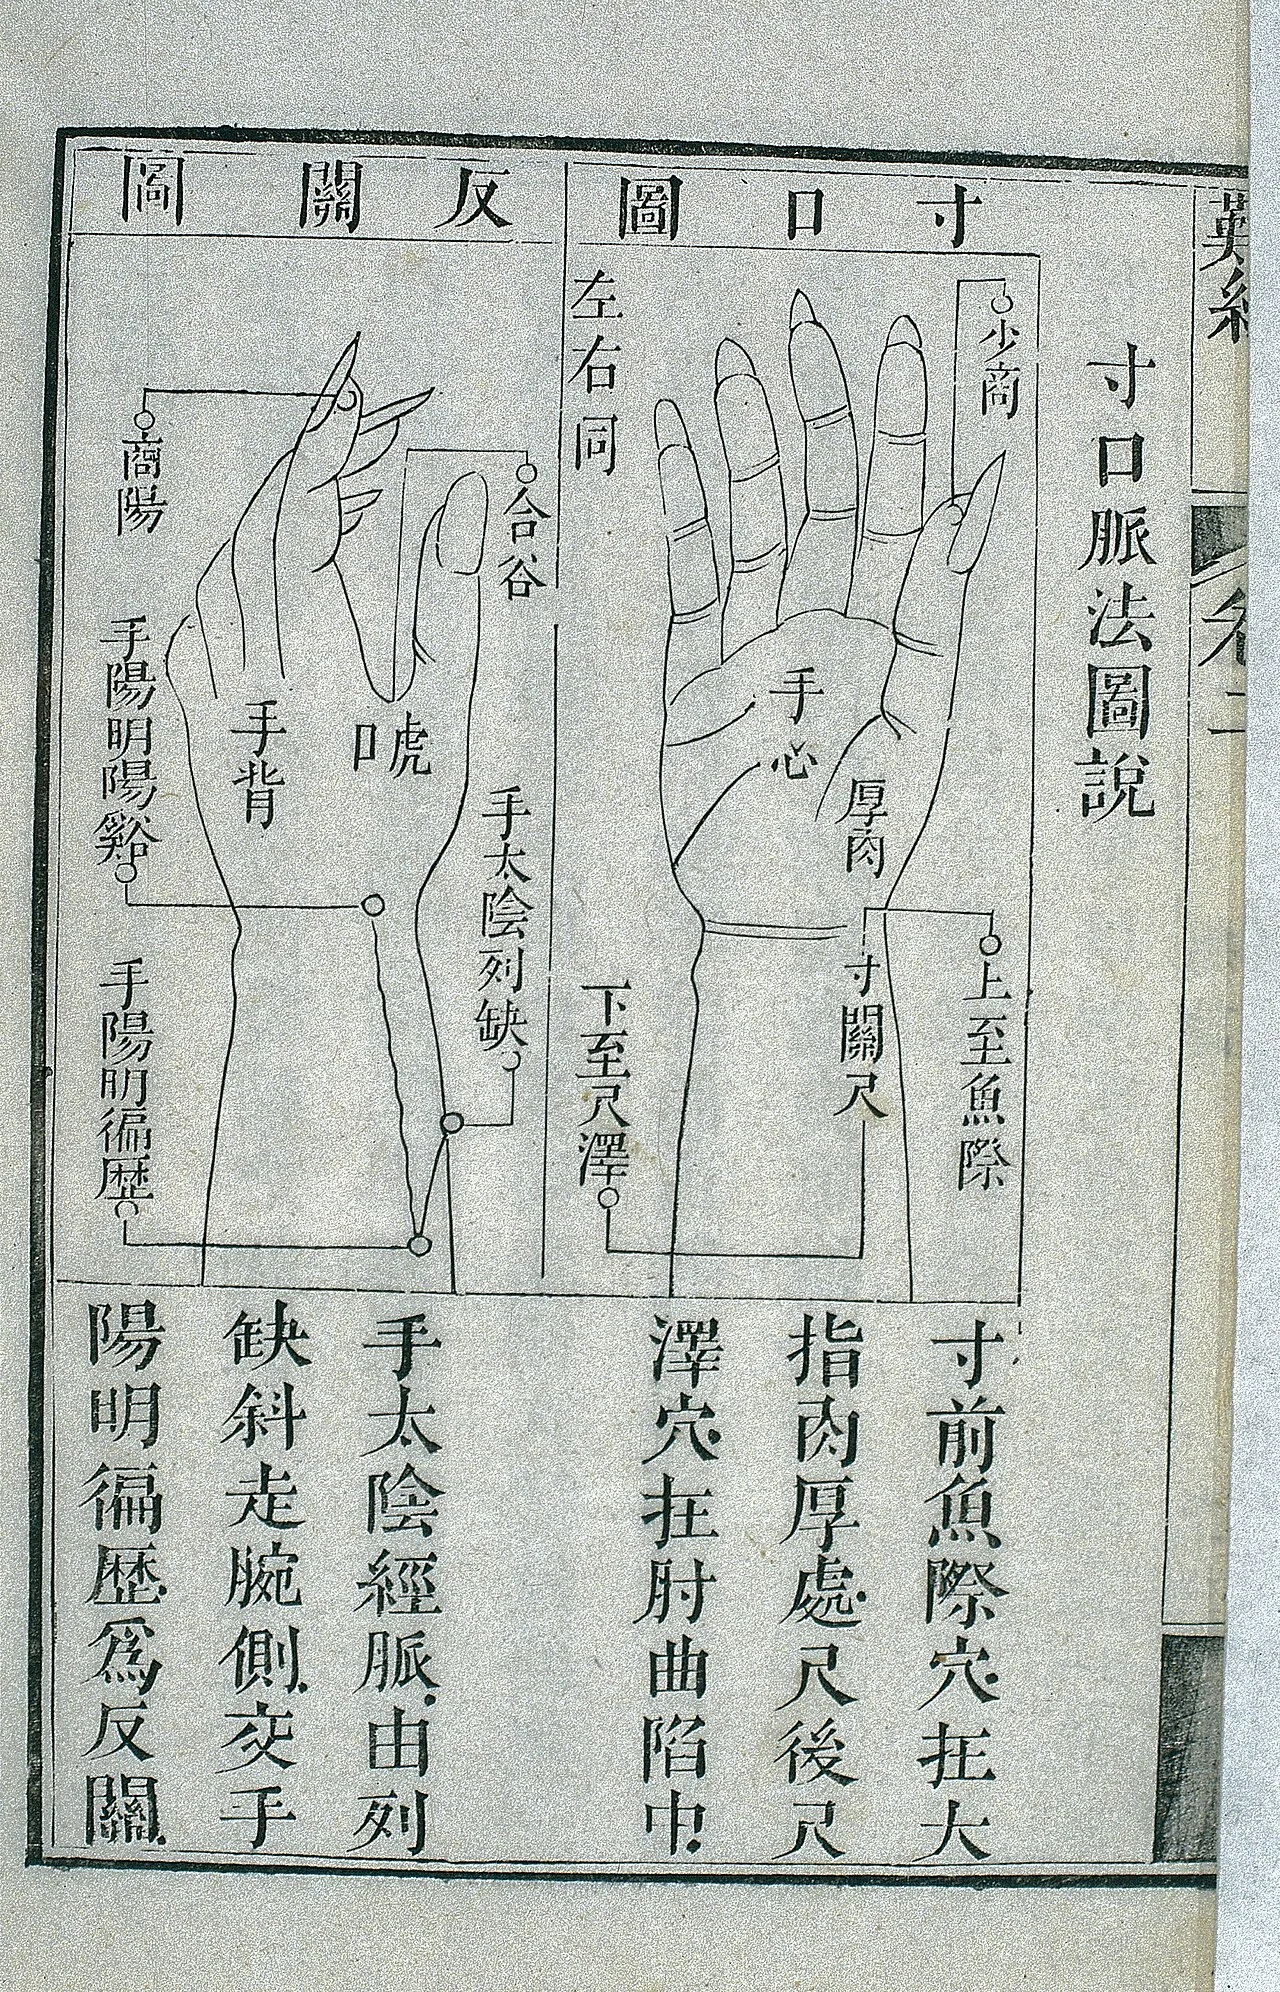 難經
卷二
寸口脈法圖說
寸口圖
少商
左右同
手心
厚肉
寸關尺
上至魚際
下至尺澤
寸前魚際穴.在大
指肉厚處.尺後尺
澤穴.在肘曲陷中.
反關圖
合谷
商陽
虎口
手背
手太陰列缺
手陽明陽谿
手陽明徧歷
手太陰經脈.由列
缺斜走腕側.交手
陽明徧歷.爲反關.